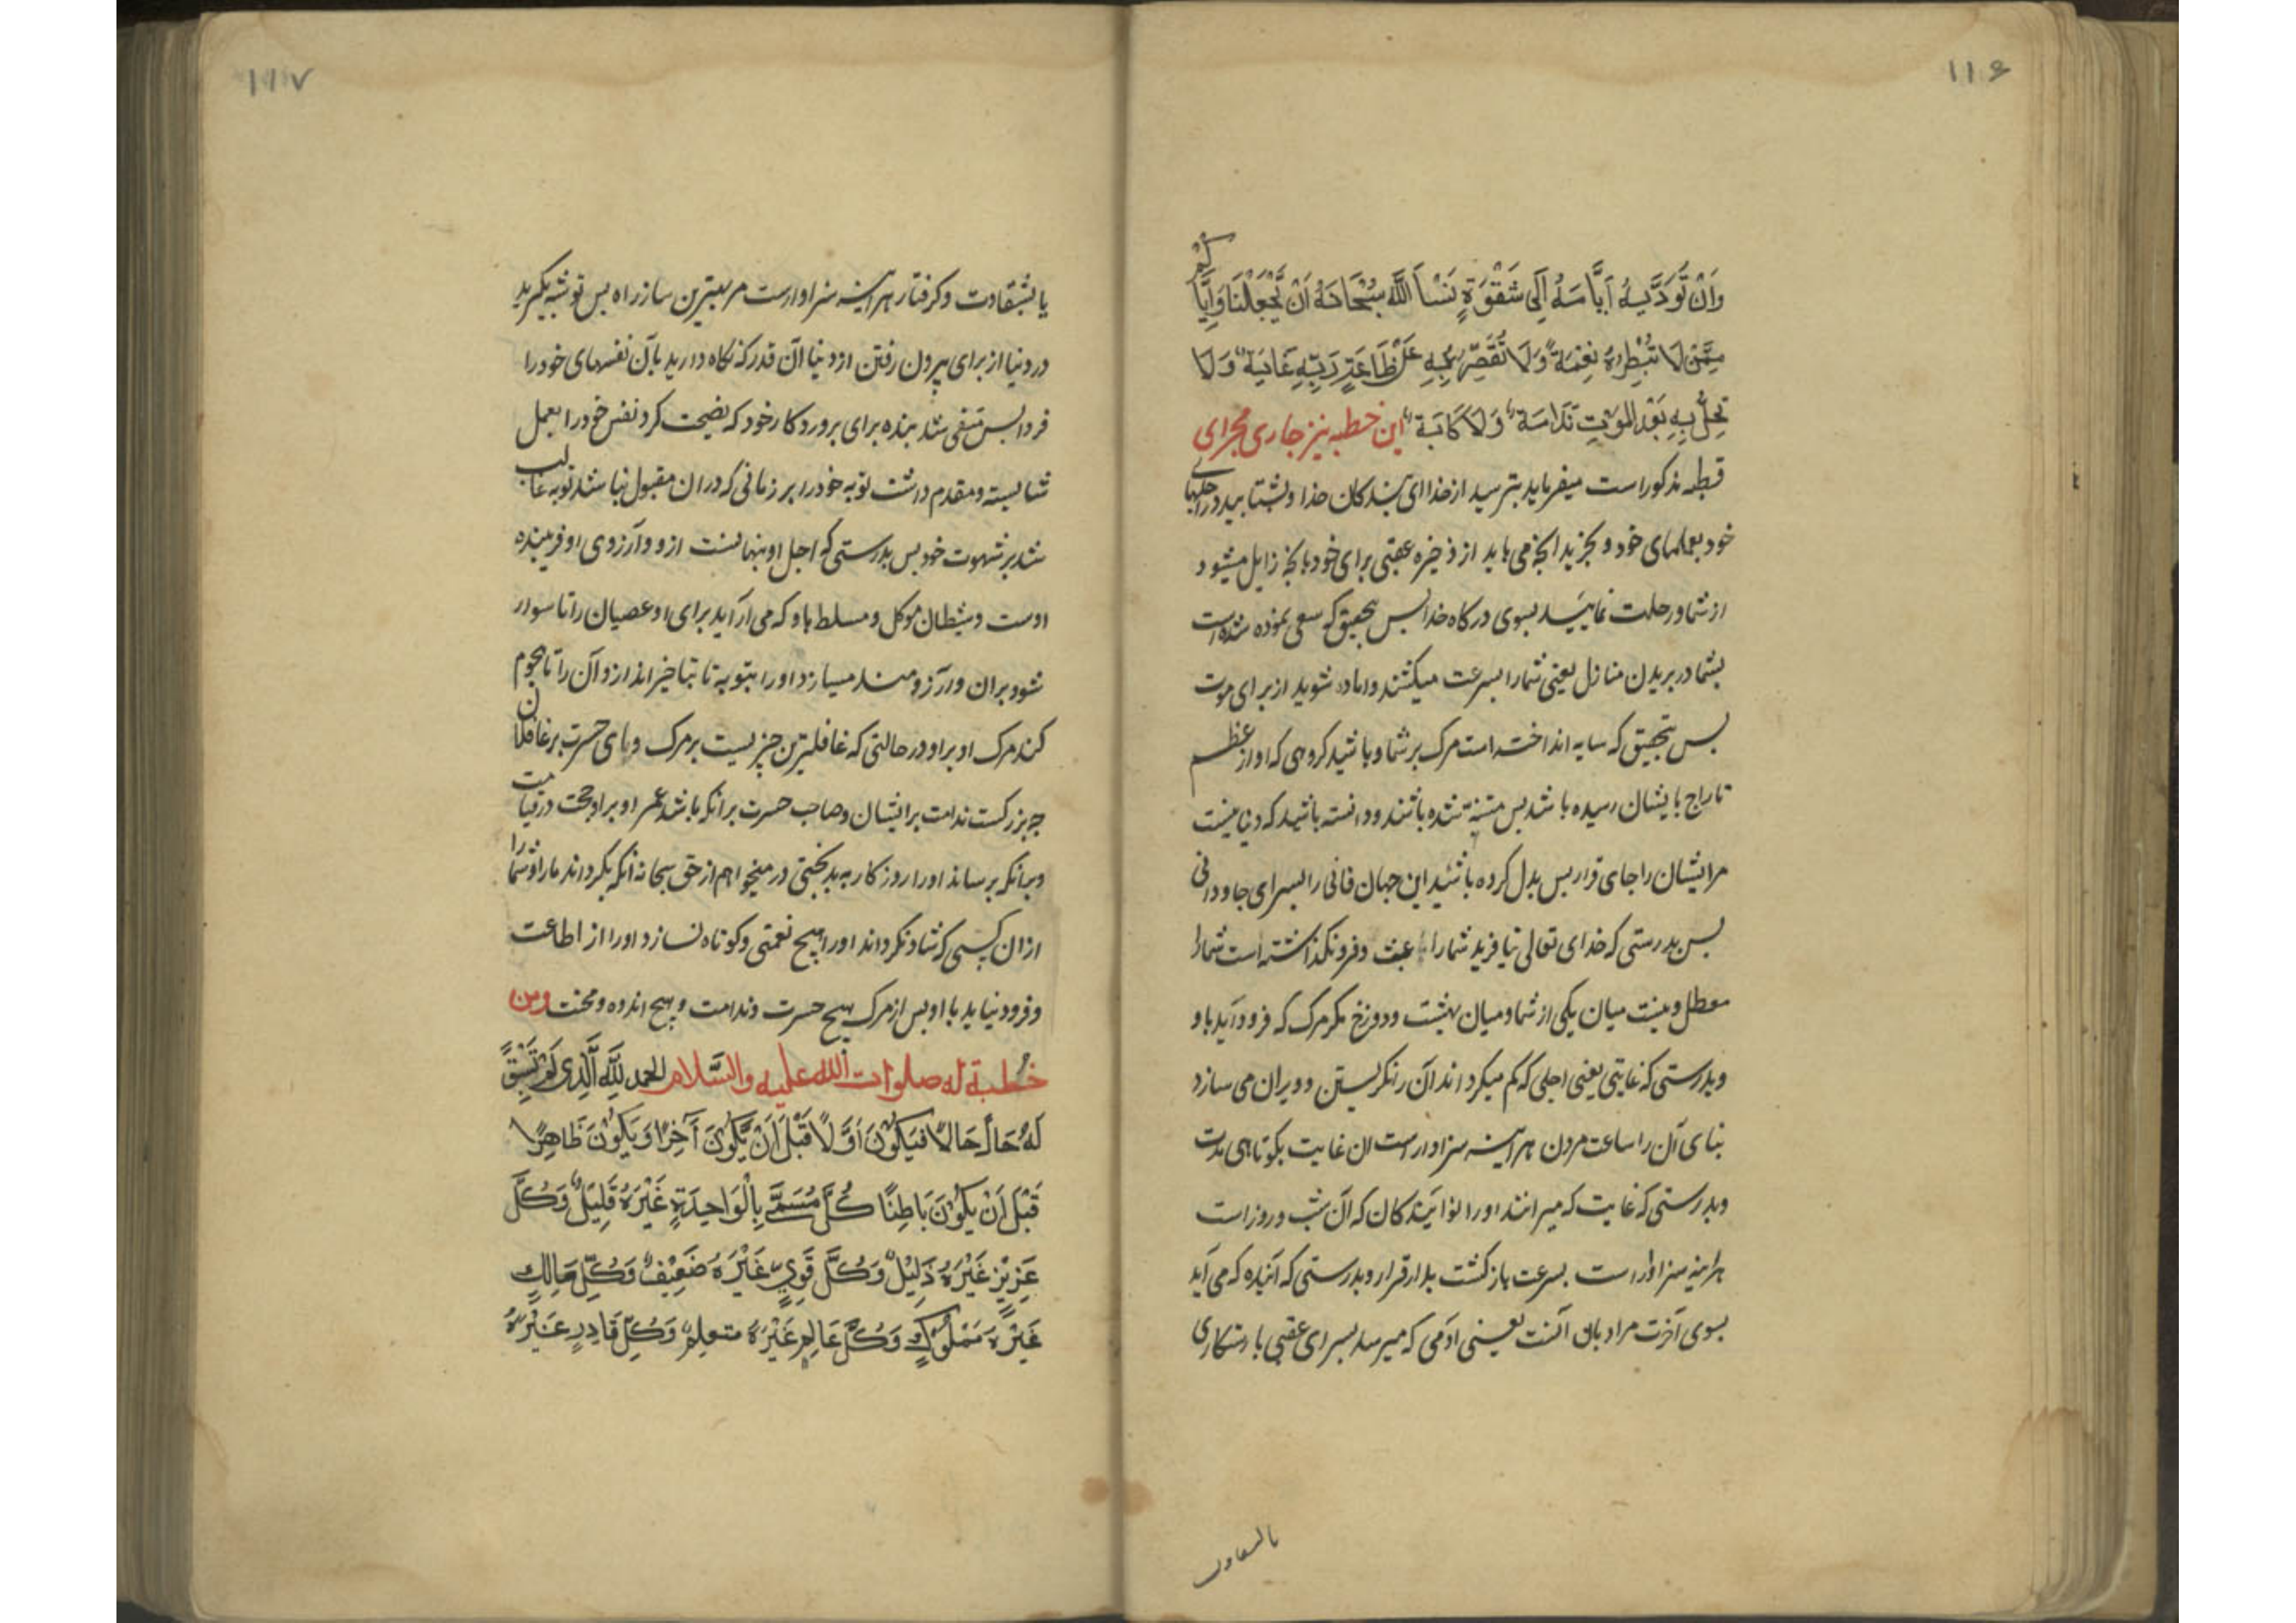 ۱۱۶
وَاَنْ تُؤَدِّیَهُ اَیَّامُهُ اِلَی شَقْوَةٍ نَسْأَلُ اللَّهَ سُبْحَانَهُ اَنْ یَّجْعَلَنَا وَاِیَّاکُمْ
مِمَّنْ لَا تُبْطِرُهُ نِعْمَةٌ وَلَا تُقَصِّرُ بِهِ عَنْ طَاعَةِ رَبِّهِ غَایَةٌ وَلَا
تَحُلُّ بِهِ بَعْدَ المَوْتِ نَدَامَةٌ وَلَا کَابَةٌ این خطبه نیز جاری مجرای
خطبه مذکور است میفرماید بترسید از خدا ای بندکان خدا وبشتابید در اجلهای
خود بعملهای خود و بخرید انچه می باید از ذخیره عقبی برای خود بانچه زایل میشود
از شما و رحلت نمایید بسوی درکاه خدا بس بتحقیق که سعی نموده شده است
بشما در بریدن منازل یعنی شما را بسرعت میکشند واماده شوید از برای موت
بس بتحقیق که سایه انداخته است مرک بر شما وباشید کروهی که اواز عظیم
تاراج بایشان رسیده باشد بس متنبه شده باشند و دانسته باشید که دنیا نیست
مر ایشان را جای قرار بس بدل کرده باشید این جهان فانی را بسرای جاودانی
بس بدرستی که خدای تعالی نیافرید شما را عبث وفرونکذاشته است شما را
معطل ونیست میان یکی از شما و میان بهشت ودوزخ مکر مرک که فرود آید باو
وبدرستی که غایتی یعنی اجلی که کم میکرداند آن را نکریستن و ویران می سازد
بنای آن را ساعت مردن هر اینه سزاوار است ان غایت بکوتاهی مدت
وبدرستی که غایت که میرانند او را نوآیندکان که آن شب و روز است
هراینه سزاوار است بسرعت بازکشت بدار قرار وبدرستی که آینده که می آید
بسوی آخرت مراد بان آنست یعنی آدمی که میرسد بسرای عقبی با رستکاری
بالشقاوت
۱۱۷
یا بشقاوت و کرفتار هر اینه سزاوار است مر بهترین ساز راه بس توشه بکیرید
در دنیا از برای بیرون رفتن از دنیا آن قدر که نکاه دارید بآن نفسهای خود را
فردا بس متقی شد بنده برای بروردکار خود که نصیحت کرد نفس خود را بعمل
شایسته و مقدم داشت توبه خود را بر زمانی که در ان مقبول نباشد توبه غالب
شد بر شهوت خود بس بدرستی که اجل او بنهانست از و و آرزوی او فریبنده
اوست و شیطان موکل و مسلط باو که می آراید برای او عصیان را تا سوار
شود بران و آرزومند میسازد او را بتوبه تا بتاخیر اندازد آن را تا هجوم
کند مرک او بر او در حالتی که غافلترین چیزیست بر مرک و بای حسرت بر غافلان
چه بزرکست ندامت بر ایشان وصاحب حسرت بر انکه باشد عمر او بر او حجت در قیامت
وبرانکه برساند او را روزکار به بدبختی در میخواهم از حق سبحانه انکه بکرداند ما را وشما را
از ان کسی که شاد نکرداند او را هیچ نعمتی وکوتاه نسازد او را از اطاعت
و فرود نیاید با او بس از مرک هیچ حسرت وندامت وهیچ اندوه ومحنت ومن
خُطبة له صلوات الله علیه والسَّلام الحمد لِلَّهِ الَّذِی لَمْ تَسْبِقْ
لَهُ حَالٌ حَالًا فَیَکُونَ اَوَّلًا قَبْلَ اَنْ یَّکُونَ آخِرًا وَیَکُونَ ظَاهِرًا
قَبْلَ اَنْ یَکُونَ بَاطِنًا کُلُّ مُسَمًّی بِالْوَاحِدَةِ غَیْرَهُ قَلِیلٌ وَکُلُّ
عَزِیْزٍ غَیْرَهُ ذَلِیْلٌ وَکُلُّ قَوِیٍّ غَیْرَهُ ضَعِیْفٌ وَکُلُّ مَالِكٍ
غَیْرَهُ مَمْلُوْكٌ وَکُلُّ عَالِمٍ غَیْرَهُ متعلمٌ وَکُلُّ قَادِرٍ غَیْرَهُ